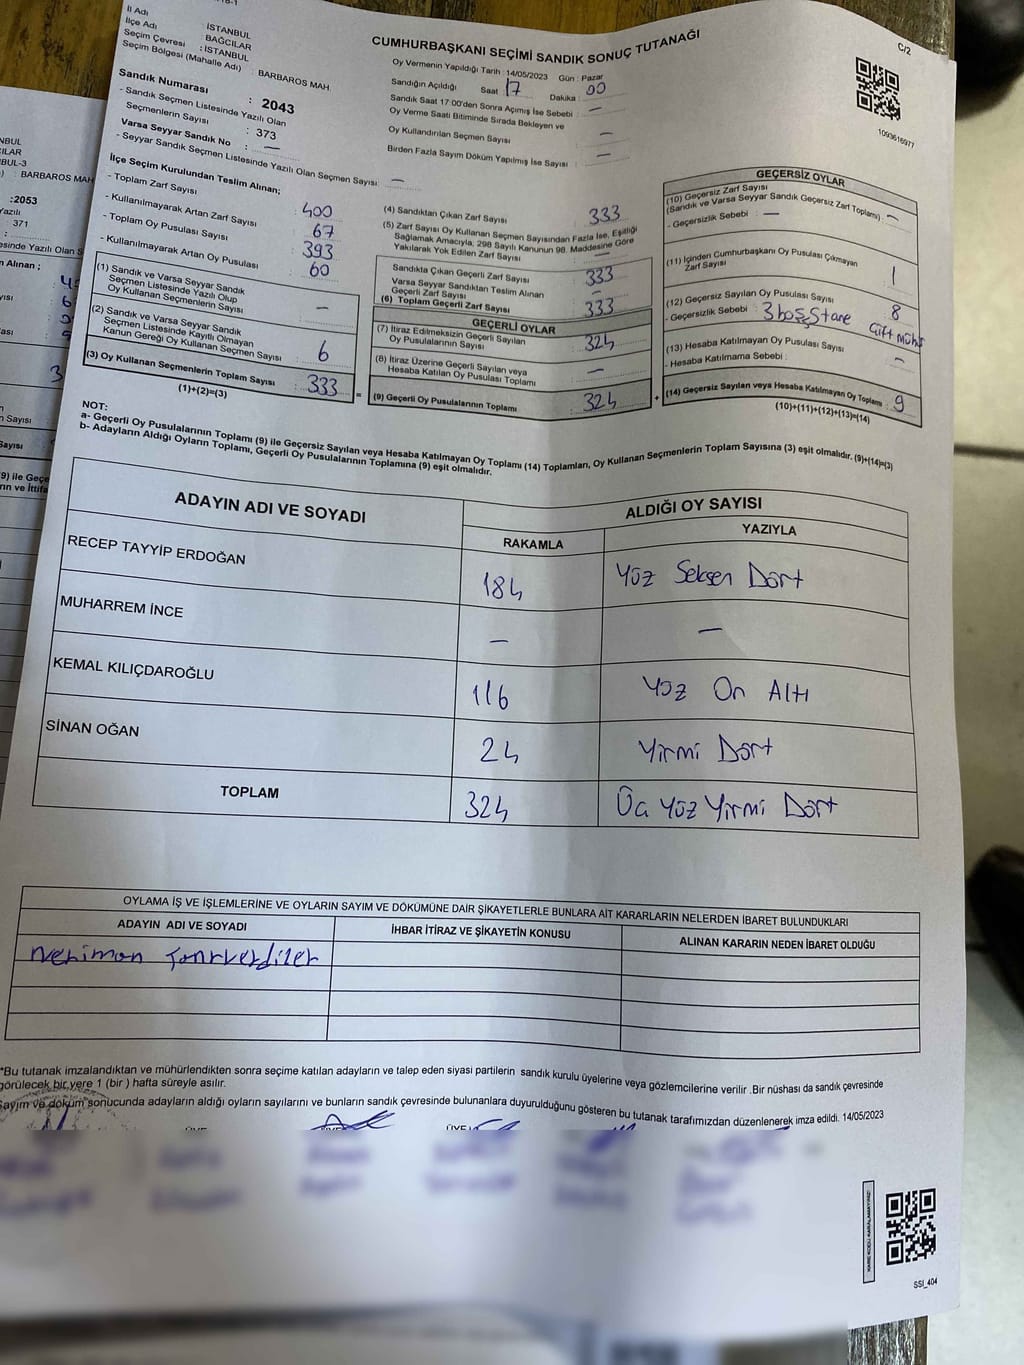 18-1
C/2
İl Adı : İSTANBUL
İlçe Adı : BAĞCILAR
Seçim Çevresi : İSTANBUL
Seçim Bölgesi (Mahalle Adı) : BARBAROS MAH.
Sandık Numarası : 2043
- Sandık Seçmen Listesinde Yazılı Olan Seçmenlerin Sayısı : 373
Varsa Seyyar Sandık No : —
- Seyyar Sandık Seçmen Listesinde Yazılı Olan Seçmen Sayısı : —
CUMHURBAŞKANI SEÇİMİ SANDIK SONUÇ TUTANAĞI
Oy Vermenin Yapıldığı Tarih : 14/05/2023 Gün : Pazar
Sandığın Açıldığı Saat 17 Dakika : 00
Sandık Saat 17.00'den Sonra Açımış İse Sebebi : —
Oy Verme Saati Bitiminde Sırada Bekleyen ve
Oy Kullandırılan Seçmen Sayısı : —
Birden Fazla Sayım Döküm Yapılmış İse Sayısı : —
1093616977
İlçe Seçim Kurulundan Teslim Alınan;
- Toplam Zarf Sayısı : 400
- Kullanılmayarak Artan Zarf Sayısı : 67
- Toplam Oy Pusulası Sayısı : 393
- Kullanılmayarak Artan Oy Pusulası : 60
(1) Sandık ve Varsa Seyyar Sandık
Seçmen Listesinde Yazılı Olup
Oy Kullanan Seçmenlerin Sayısı : —
(2) Sandık ve Varsa Seyyar Sandık
Seçmen Listesinde Kayıtlı Olmayan
Kanun Gereği Oy Kullanan Seçmen Sayısı : 6
(3) Oy Kullanan Seçmenlerin Toplam Sayısı : 333
(1)+(2)=(3)
(4) Sandıktan Çıkan Zarf Sayısı : 333
(5) Zarf Sayısı Oy Kullanan Seçmen Sayısından Fazla İse, Eşitliği
Sağlamak Amacıyla, 298 Sayılı Kanunun 98. Maddesine Göre
Yakılarak Yok Edilen Zarf Sayısı : —
Sandıkta Çıkan Geçerli Zarf Sayısı : 333
Varsa Seyyar Sandıktan Teslim Alınan
Geçerli Zarf Sayısı : —
(6) Toplam Geçerli Zarf Sayısı : 333
GEÇERLİ OYLAR
(7) İtiraz Edilmeksizin Geçerli Sayılan
Oy Pusulalarının Sayısı : 324
(8) İtiraz Üzerine Geçerli Sayılan veya
Hesaba Katılan Oy Pusulası Toplamı : —
(9) Geçerli Oy Pusulalarının Toplamı : 324
GEÇERSİZ OYLAR
(10) Geçersiz Zarf Sayısı
(Sandık ve Varsa Seyyar Sandık Geçersiz Zarf Toplamı) : —
- Geçersizlik Sebebi : —
(11) İçinden Cumhurbaşkanı Oy Pusulası Çıkmayan
Zarf Sayısı : 1
(12) Geçersiz Sayılan Oy Pusulası Sayısı : 8
- Geçersizlik Sebebi : 3 boş 5 tane Çift mühr
(13) Hesaba Katılmayan Oy Pusulası Sayısı : —
- Hesaba Katılmama Sebebi :
(14) Geçersiz Sayılan veya Hesaba Katılmayan Oy Toplamı : 9
(10)+(11)+(12)+(13)=(14)
NOT:
a- Geçerli Oy Pusulalarının Toplamı (9) ile Geçersiz Sayılan veya Hesaba Katılmayan Oy Toplamı (14) Toplamları, Oy Kullanan Seçmenlerin Toplam Sayısına (3) eşit olmalıdır. (9)+(14)=(3)
b- Adayların Aldığı Oyların Toplamı, Geçerli Oy Pusulalarının Toplamına (9) eşit olmalıdır.
ADAYIN ADI VE SOYADI
ALDIĞI OY SAYISI
RAKAMLA YAZIYLA
RECEP TAYYİP ERDOĞAN 184 Yüz Seksen Dört
MUHARREM İNCE — —
KEMAL KILIÇDAROĞLU 116 Yüz On Altı
SİNAN OĞAN 24 Yirmi Dört
TOPLAM 324 Üç Yüz Yirmi Dört
OYLAMA İŞ VE İŞLEMLERİNE VE OYLARIN SAYIM VE DÖKÜMÜNE DAİR ŞİKAYETLERLE BUNLARA AİT KARARLARIN NELERDEN İBARET BULUNDUKLARI
ADAYIN ADI VE SOYADI İHBAR İTİRAZ VE ŞİKAYETİN KONUSU ALINAN KARARIN NEDEN İBARET OLDUĞU
Neriman
*Bu tutanak imzalandıktan ve mühürlendikten sonra seçime katılan adayların ve talep eden siyasi partilerin sandık kurulu üyelerine veya gözlemcilerine verilir .Bir nüshası da sandık çevresinde
görülecek bir yere 1 (bir ) hafta süreyle asılır.
Sayım ve döküm sonucunda adayların aldığı oyların sayılarını ve bunların sandık çevresinde bulunanlara duyurulduğunu gösteren bu tutanak tarafımızdan düzenlenerek imza edildi. 14/05/2023
ÜYE
SSI_404
: BARBAROS MAH
:2053
371